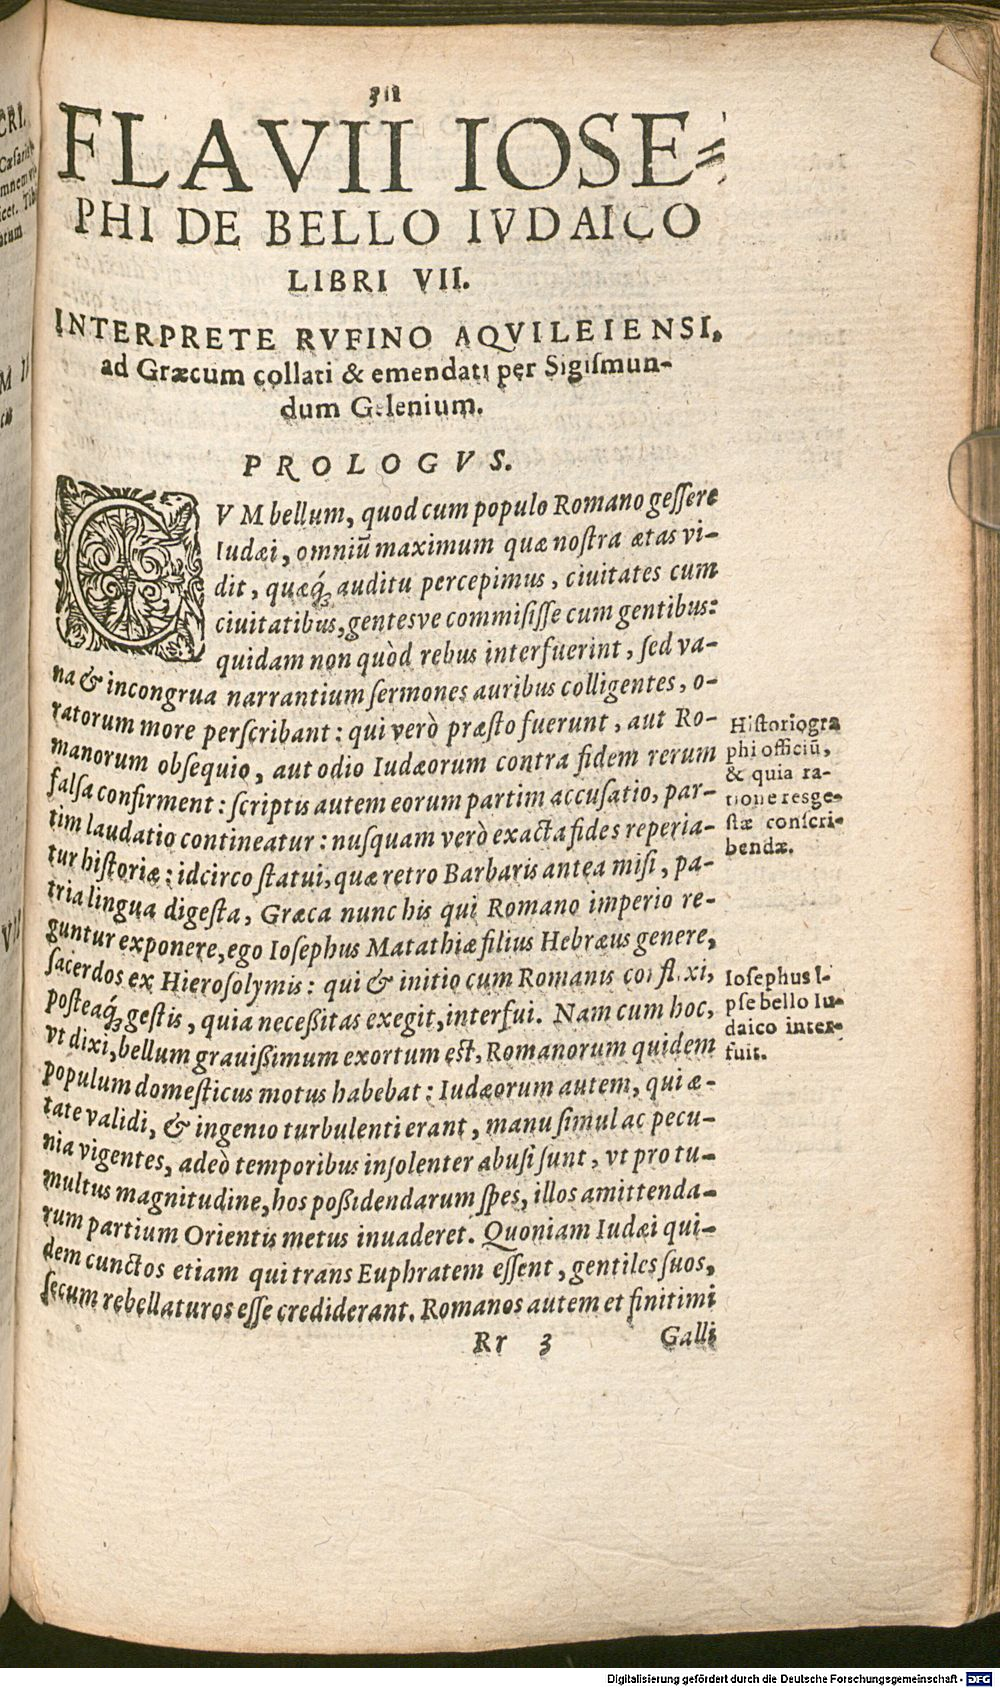 FLAVII IOSE-
PHI DE BELLO IVDAICO
LIBRI VII.
INTERPRETE RVFINO AQVILEIENSI,
ad Græcum collati & emendati per Sigiſmun-
dum Gelenium.
PROLOGVS.
CVM bellum, quod cum populo Romano geſſere
Iudæi, omniũ maximum quæ noſtra ætas vi-
dit, quæq́; auditu percepimus, ciuitates cum
ciuitatibus, gentesve commiſiſſe cum gentibus:
quidam non quòd rebus interfuerint, ſed va-
na & incongrua narrantium ſermones auribus colligentes, o-
ratorum more perſcribant: qui verò præſto fuerunt, aut Ro-
manorum obſequio, aut odio Iudæorum contra fidem rerum
falſa confirment: ſcriptis autem eorum partim accuſatio, par-
tim laudatio contineatur: nuſquam verò exacta fides reperia-
tur hiſtoriæ: idcirco ſtatui, quæ retro Barbaris antea miſi, pa-
tria lingua digeſta, Græca nunc his qui Romano imperio re-
guntur exponere, ego Ioſephus Matathiæ filius Hebræus genere,
ſacerdos ex Hieroſolymis: qui & initio cum Romanis conflixi,
poſteaq́; geſtis, quia neceßitas exegit, interfui. Nam cum hoc,
vt dixi, bellum grauißimum exortum eſt, Romanorum quidem
populum domeſticus motus habebat: Iudæorum autem, qui æ-
tate validi, & ingenio turbulenti erant, manu ſimul ac pecu-
nia vigentes, adeò temporibus inſolenter abuſi ſunt, vt pro tu-
multus magnitudine, hos poßidendarum ſpes, illos amittenda-
rum partium Orientis metus inuaderet. Quoniam Iudæi qui-
dem cunctos etiam qui trans Euphratem eſſent, gentiles ſuos,
ſecum rebellaturos eſſe crediderant. Romanos autem et finitimi
Rr 3 Galli
Hiſtoriogra
phi officiũ,
& quia ra-
tione resge-
ſtæ conſcri-
bendæ.
Ioſephus I-
pſe bello Iu-
daico inter-
fuit.
Digitalisierung gefördert durch die Deutsche Forschungsgemeinschaft - DFG